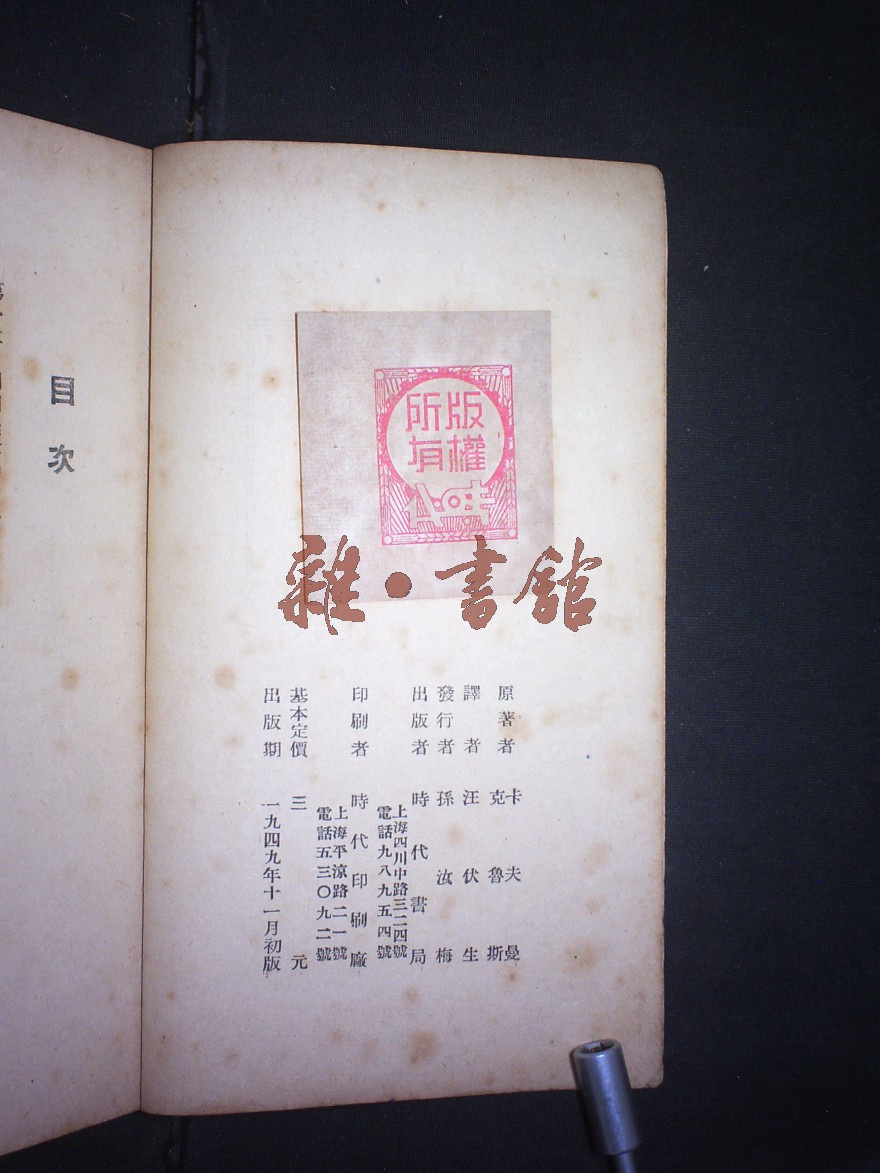 版權
所有
雜·書館
原著者 卡夫曼
克魯斯
譯者 汪伏生
發行者 孫汝梅
出版者 時代書局
上海四川中路三二四號
電話九八九五四號
印刷者 時代印刷廠
上海平涼路二一號
電話五三〇九二號
基本定價 三元
出版期 一九四九年十一月初版
目次